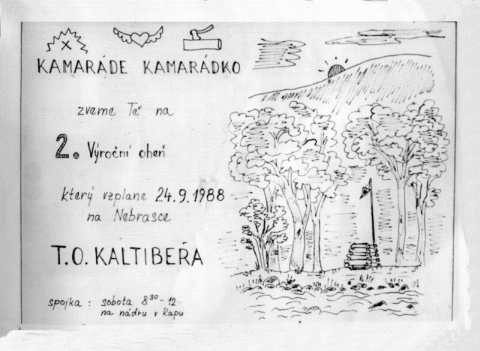 KAMARÁDE KAMARÁDKO
zveme Tě na
2. Výroční oheň
který vzplane 24.9.1988
na Nebrasce
T.O. KALTIBEŘA
spojka : sobota 8³⁰-12
na nádru v Rapu